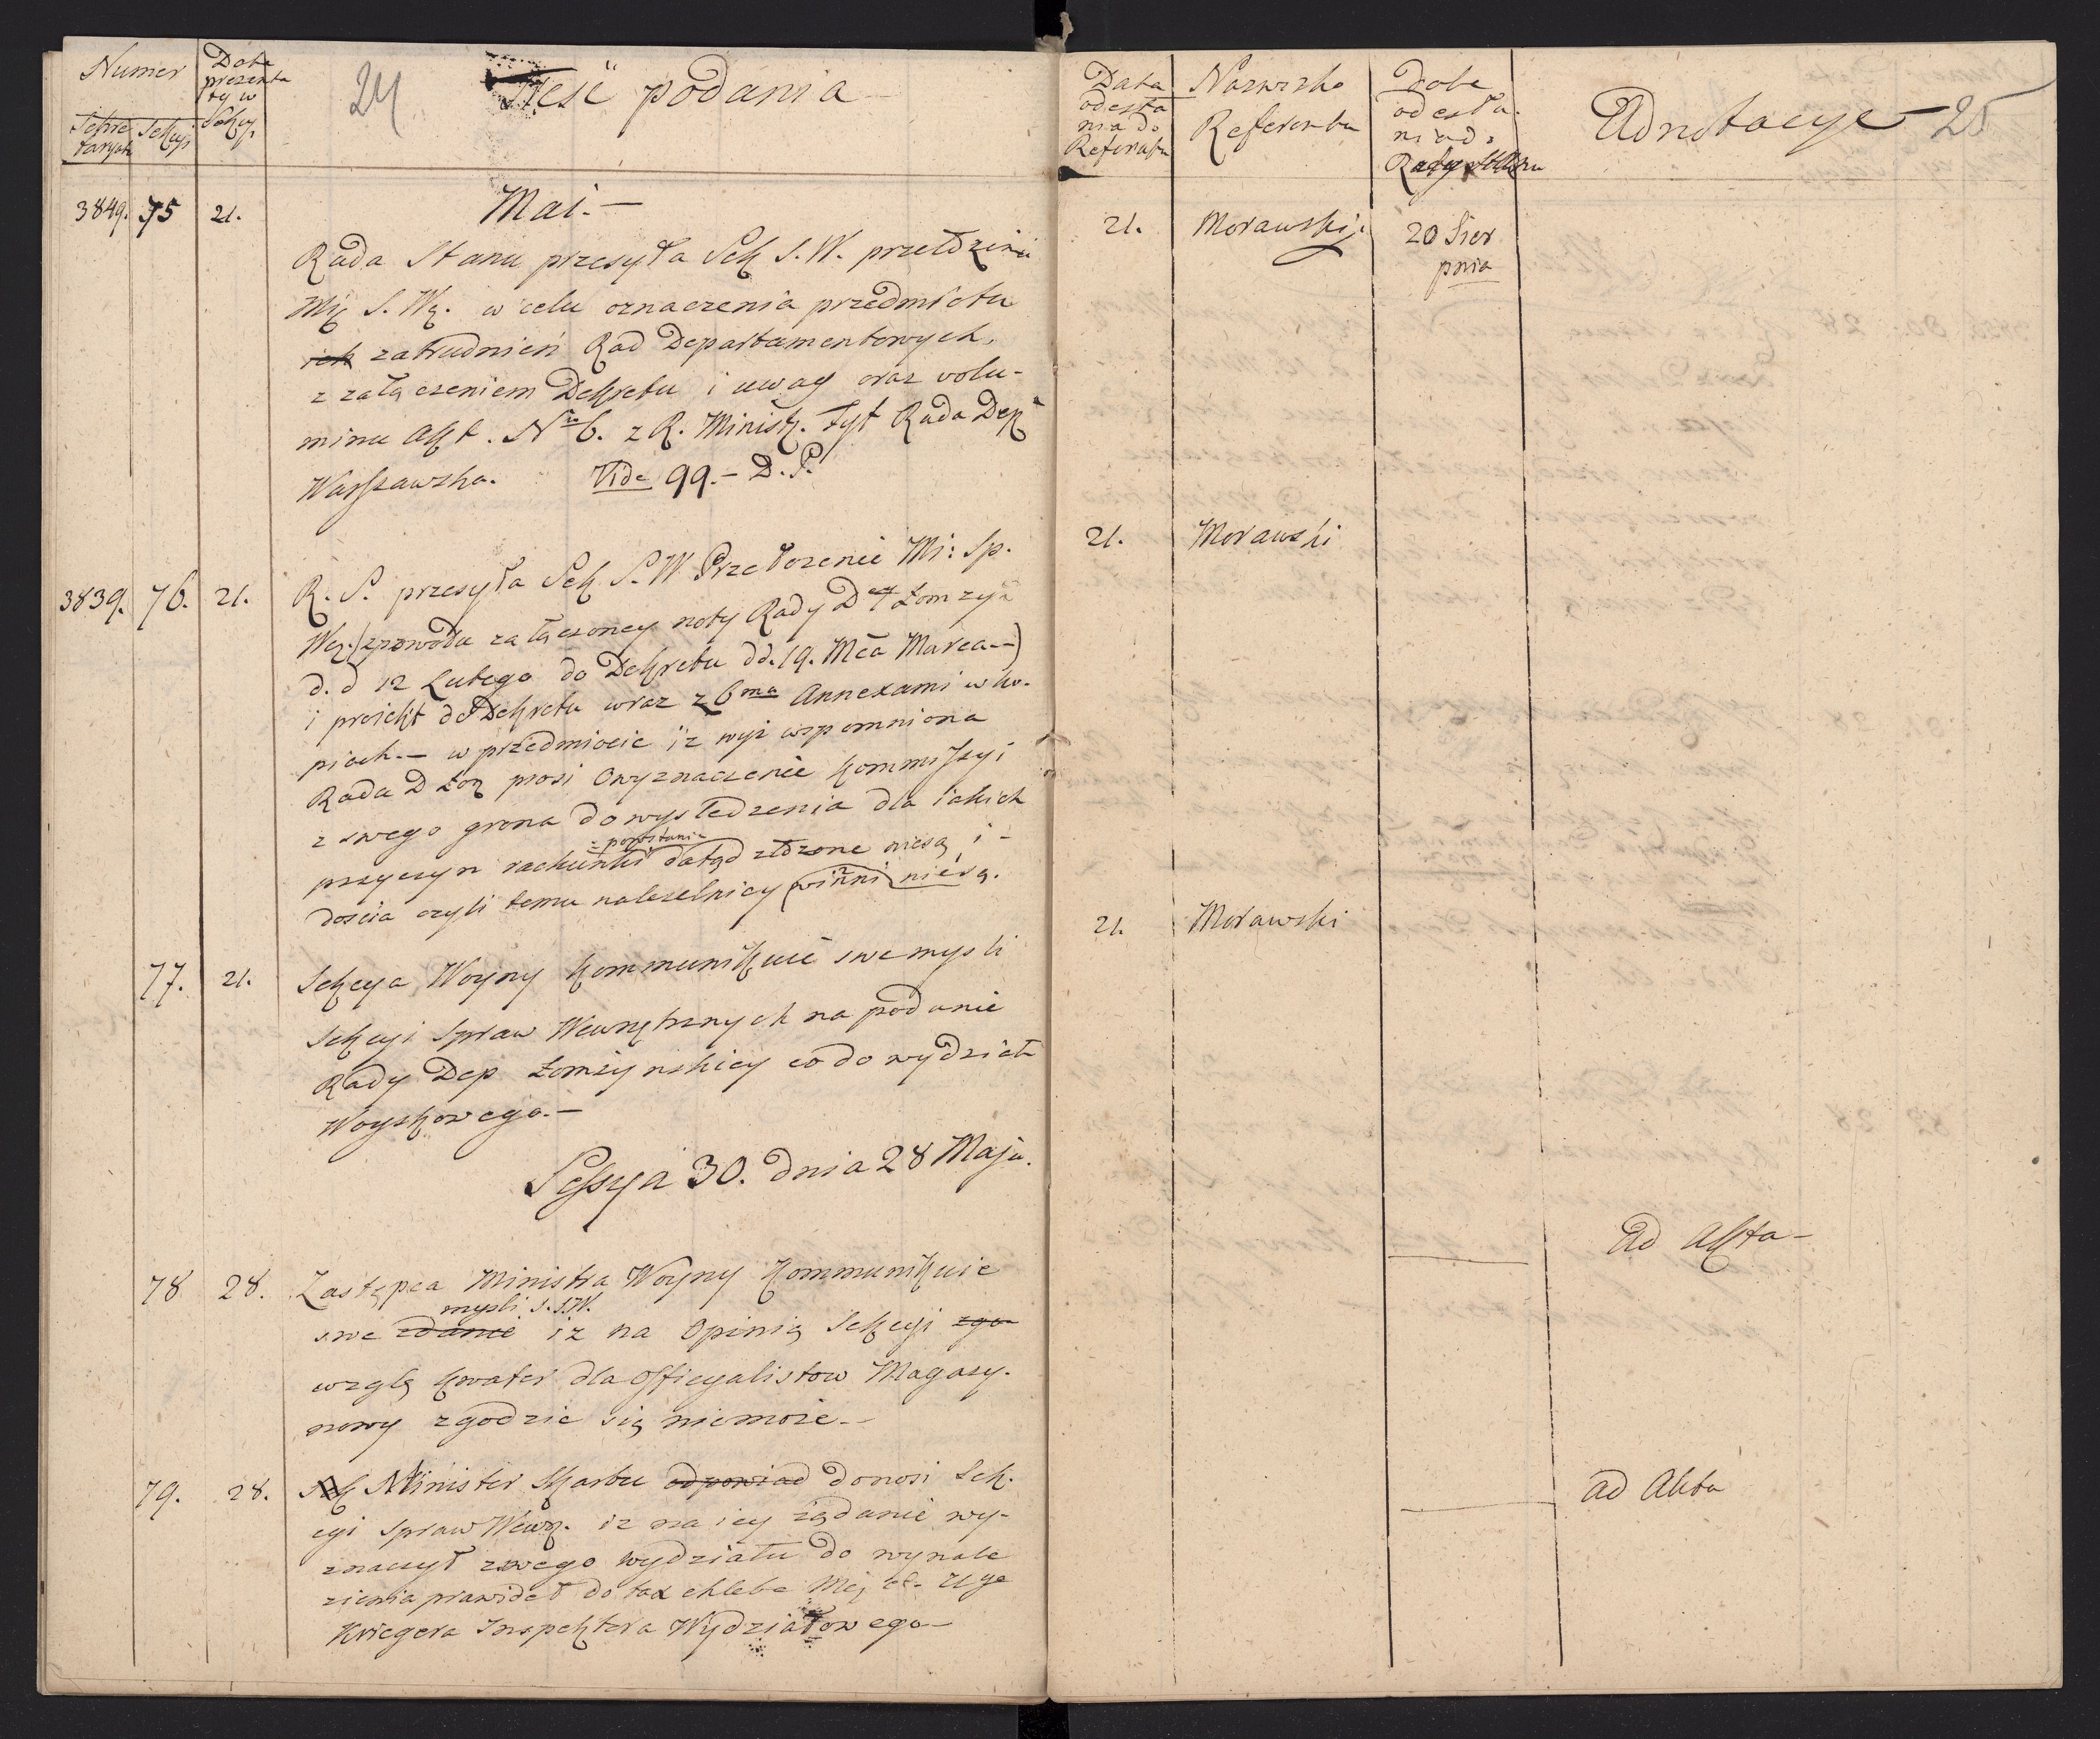 Numer
Data
prezenta
ty w
Sekcyi
Sekre
taryatu
Sekcyi
24
Treść podania
Mai.—
3849. 75 21.
Rada Stanu przesyła Sek S. W. przełożenie
Mi S. We. w celu oznaczenia przedmiotu
ich zatrudnień Rad Departamentowych,
z załączeniem Dekretu i uwag oraz volu-
minu Akt. N 6. z R. Minist. Tyt Rada Dep
Warszawska. Vide 99.— D. P.
3839. 76. 21.
R. S. przesyła Sek S. W. Przełożenie Mi: Sp.
We. (z powodu załączoney noty Rady D Łomzyń
d. d 12 Lutego do Dekretu dd. 19. Mca Marca—)
i proiekt do Dekretu wraz z 6ma Annexami w ko-
piach.— w przedmiocie iz wyż wspomniona
Rada D Łom prosi o wyznaczenie Kommissyi
z swego grona do wyśledzenia dla iakich
z powstania
przyczyn rachunki dotąd złożone niesą i-
dościa czyli temu naczelnicy winni niesą.
77. 21.
Sekcya Woyny Kommunikuie swe mysli
Sekcyi Spraw Wewnętrznych na podanie
Rady Dep Łomżynskiey co do wydział
Woyskowego.—
Sessya 30. dnia 28 Maja.
78 28.
Zastępca Ministra Woyny Kommunikuie
mysli S. S. W.
swe zdanie iz na Opinią Sekcyi zgo
wzglę kwater dla Officyalistow Magazy-
nowy zgodzic się niemoże.—
79. 28.
Sek Minister Skarbu odpowiad donosi Sek-
cyi Spraw Wewn. iz na iey żądanie wy-
znaczył z swego wydziału do wynale
zienia prawideł do tax chleba Mię et.
Kriegera Inspektora Wydziałowego—
Data
odesła
nia do
Referenta
Nazwisko
Referenta
Data
odesła-
nia do
Rady Stanu
Adnotacye— 25
21. Morawski. 20 Sier
pnia
21. Morawski
21. Morawski
Ad Akta—
ad Akta